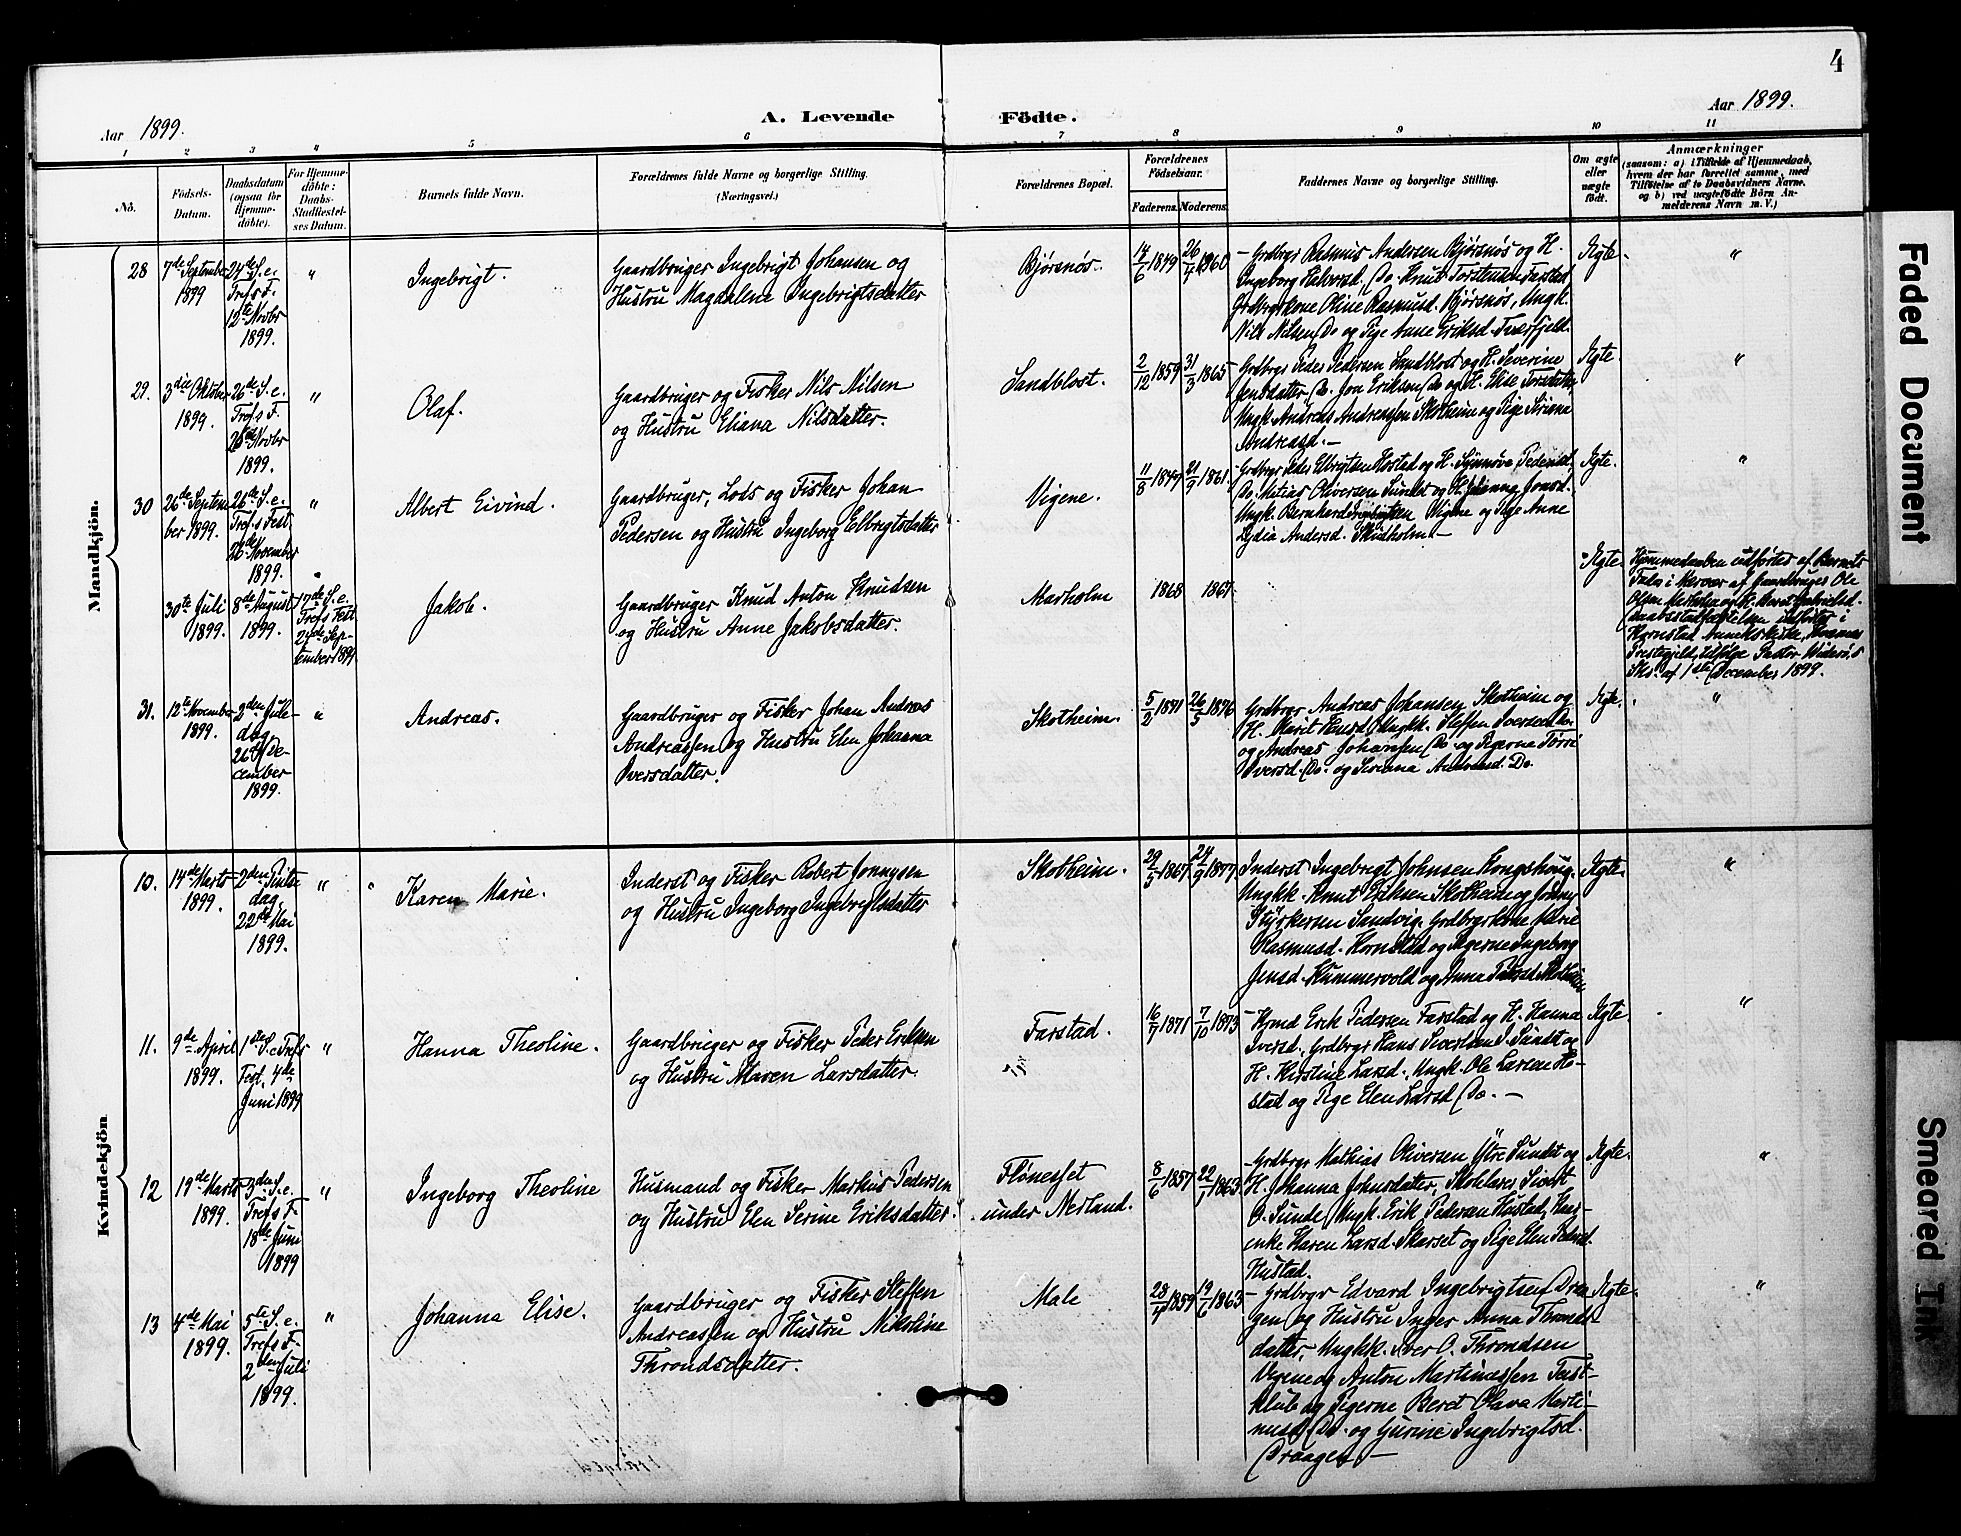 4
Aar 1899.
A. Levende Födte.
Aar 1899.
1 2 3 4 5 6 7 8 9 10 11
No.
Födsels-
Datum.
Daabsdatum
(ogsaa for
Hjemme-
döbte).
For Hjemme-
döbte:
Daabs-
Stadfæstel-
ses Datum.
Barnets fulde Navn.
Forældrenes fulde Navne og borgerlige Stilling.
(Næringsvei.)
Forældrenes Bopæl.
Forældrenes
Födselsaar.
Faderens. Moderens.
Faddernes Navne og borgerlige Stilling.
Om ægte
eller
uægte
födt.
Anmærkninger
(saasom: a) i Tilfælde af Hjemmedaab,
hvem der har forrettet samme, med
Tilföielse af to Daabsvidners Navne.
og b) ved uægtefödte Börn An-
melderens Navn m. V.)
Mandkjön.
28
7de September
1899
24de S. e.
Trefs F.
12te Novbr
1899.
"
Ingebrigt.
Gaardbruger Ingebrigt Johansen og
Hustru Magdalene Ingebrigtsdatter
Bjørsnøs.
14/6 1849
26/4 1860
- Grdbrgr Rasmus Andersen Bjørsnøs og H.
Ingeborg Halvorsd. Do. Knut Torstensen Farstad
Grdbrgrkone Oline Rasmusd. Bjørsnøs, Ungk.
Nils Nilsen Do og Pige Anne Eriksd. Tverfjeld.
Ægte.
"
29.
3die Oktober
1899.
26de S. e.
Trefs F.
26de Novbr
1899.
"
Olaf.
Gaardbruger og Fisker Nils Nilsen
og Hustru Eliana Nilsdatter.
Sandblost.
2/12 1859
31/3 1865
- Grdbrgr Peder Pedersen Sandblost og H. Severine
Jensdatter Do. Jon Eriksen Do og H. Elise
Ungk. Andreas Andreassen Skotheim og Pige Siriana
Andreasd. -
Ægte
"
30
26de Septem
ber 1899.
26de S. e.
Trefs Fest.
26de November
1899.
"
Albert Eivind.
Gaardbruger, Lods og Fisker Johan
Pedersen og Hustru Ingeborg Elbrigtsdatter
Vigene.
11/8 1849
21/9 1861.
- Grdbrgr Peder Elbrigtsen Hostad og H. Synnøve Pedersd.
Do. Matias Oliversen Sundet og H. Johanna Jonsd.
Ungk. Bernhard Vigene og Pige Anne
Lydia Andersd. Skudholm -
Ægte.
"
30te Juli
1899.
8de August
1899.
17de S. e.
Trefs Fest
24de Sep-
tember 1899
Jakob.
Gaardbruger Knud Anton Knudsen
og Hustru Anne Jakobsdatter.
Marholm
1868
1867.
Ægte
Hjemmedaaben udførtes af Barnets
af Gaardbruger Ole
Olsen og H. Beret Gabrielsd.
Daabsstadfæstelsen udførtes i
Kornstad Annekskirke, Kvernes
Prestegjeld, ifølge Pastor Widerøes
Skr. af 1ste December 1899.
31.
12te November
1899.
2den Jule-
dag,
26de De-
cember
1899.
"
Andreas.
Gaardbruger og Fisker Johan Andreas
Andreassen og Hustru Elen Johanna
Iversdatter.
Skotheim.
5/2 1871
26/5 1876
Grdbrgr Andreas Johansen Skotheim og
H. Marit Knudsd. Ungkk. Steffen Iversen Do.
og Andreas Johansen Do. og Pigerne Tørri
Iversd. Do. og Serianna Andreasd. Do.
Ægte.
"
Kvindekjön
10.
14de Marts
1899.
2den Pintse
dag,
22de Mai
1899.
"
Karen Marie.
Inderst og Fisker Robert Jonnysen
og Hustru Ingeborg Ingebrigtsdatter
Skotheim.
29/5 1867
24/9 1877.
Inderst Ingebrigt Johnsen Kongshoug.
Ungkk. Knut Eriksen Skotheim og Jonny
Styrkersen Sandvig. Grdbrgrkone Jane
Rasmusd. Hornstad og Pigerne Ingeborg
Jensd. Hummervold og Anna Skotheim
Ægte.
"
11.
9de April
1899.
1ste S. e. Trefs
Fest, 4de
Juni 1899
"
Hanna Theoline.
Gaardbruger og Fisker Peder Eriksen
og Hustru Maren Larsdatter.
Farstad.
16/7 1871
7/10 1873
- Kjmd Erik Pedersen Farstad og H. Hanna
Iversd. Grdbrgr Hans Sivertsen I. Sundt og
H. Kirstine Larsd., Ungk. Ole Larsen Ho-
stad og Pige Elen Larsd Do. -
Ægte.
"
12
19de Marts
1899.
3die S. e.
Trefs F.
18de Juni
1899
"
Ingeborg Theoline
Husmand og Fisker Markus Pedersen
og Hustru Elen Serine Eriksdatter.
Flønesset
under Nerland.
8/6 1857
22/1 1863.
- Grdbrgr Mathias Oliversen Ytre Sundet og
H. Johanna Johnsdatter, Skolelærer Sivert
O. Sunde, Ungk. Erik Pedersen Hustad, Hus-
enke Karen Larsd. Skarset og Pige Elen Pedersd.
Hustad.
Ægte.
"
13
4de Mai
1899.
5te S. e.
Trefs F.
2den Juli
1899.
"
Johanna Elise.
Gaardbruger og Fisker Steffen
Andreassen og Hustru Nikoline
Throndsdatter.
Male
28/4 1859
19/6 1863.
- Grdbrgr Edvard Ingebrigtsen Dra-
gen og Hustru Inger Anna Thronds
datter, Ungkk. Iver O. Throndsen
Vegene og Anton Martinussen Tust-
klub og Pigerne Beret Olava Marti-
nusd. Do. og Gurine Ingebrigtsd.
Draagen -
Ægte.
"
Faded Document
Smeared Ink